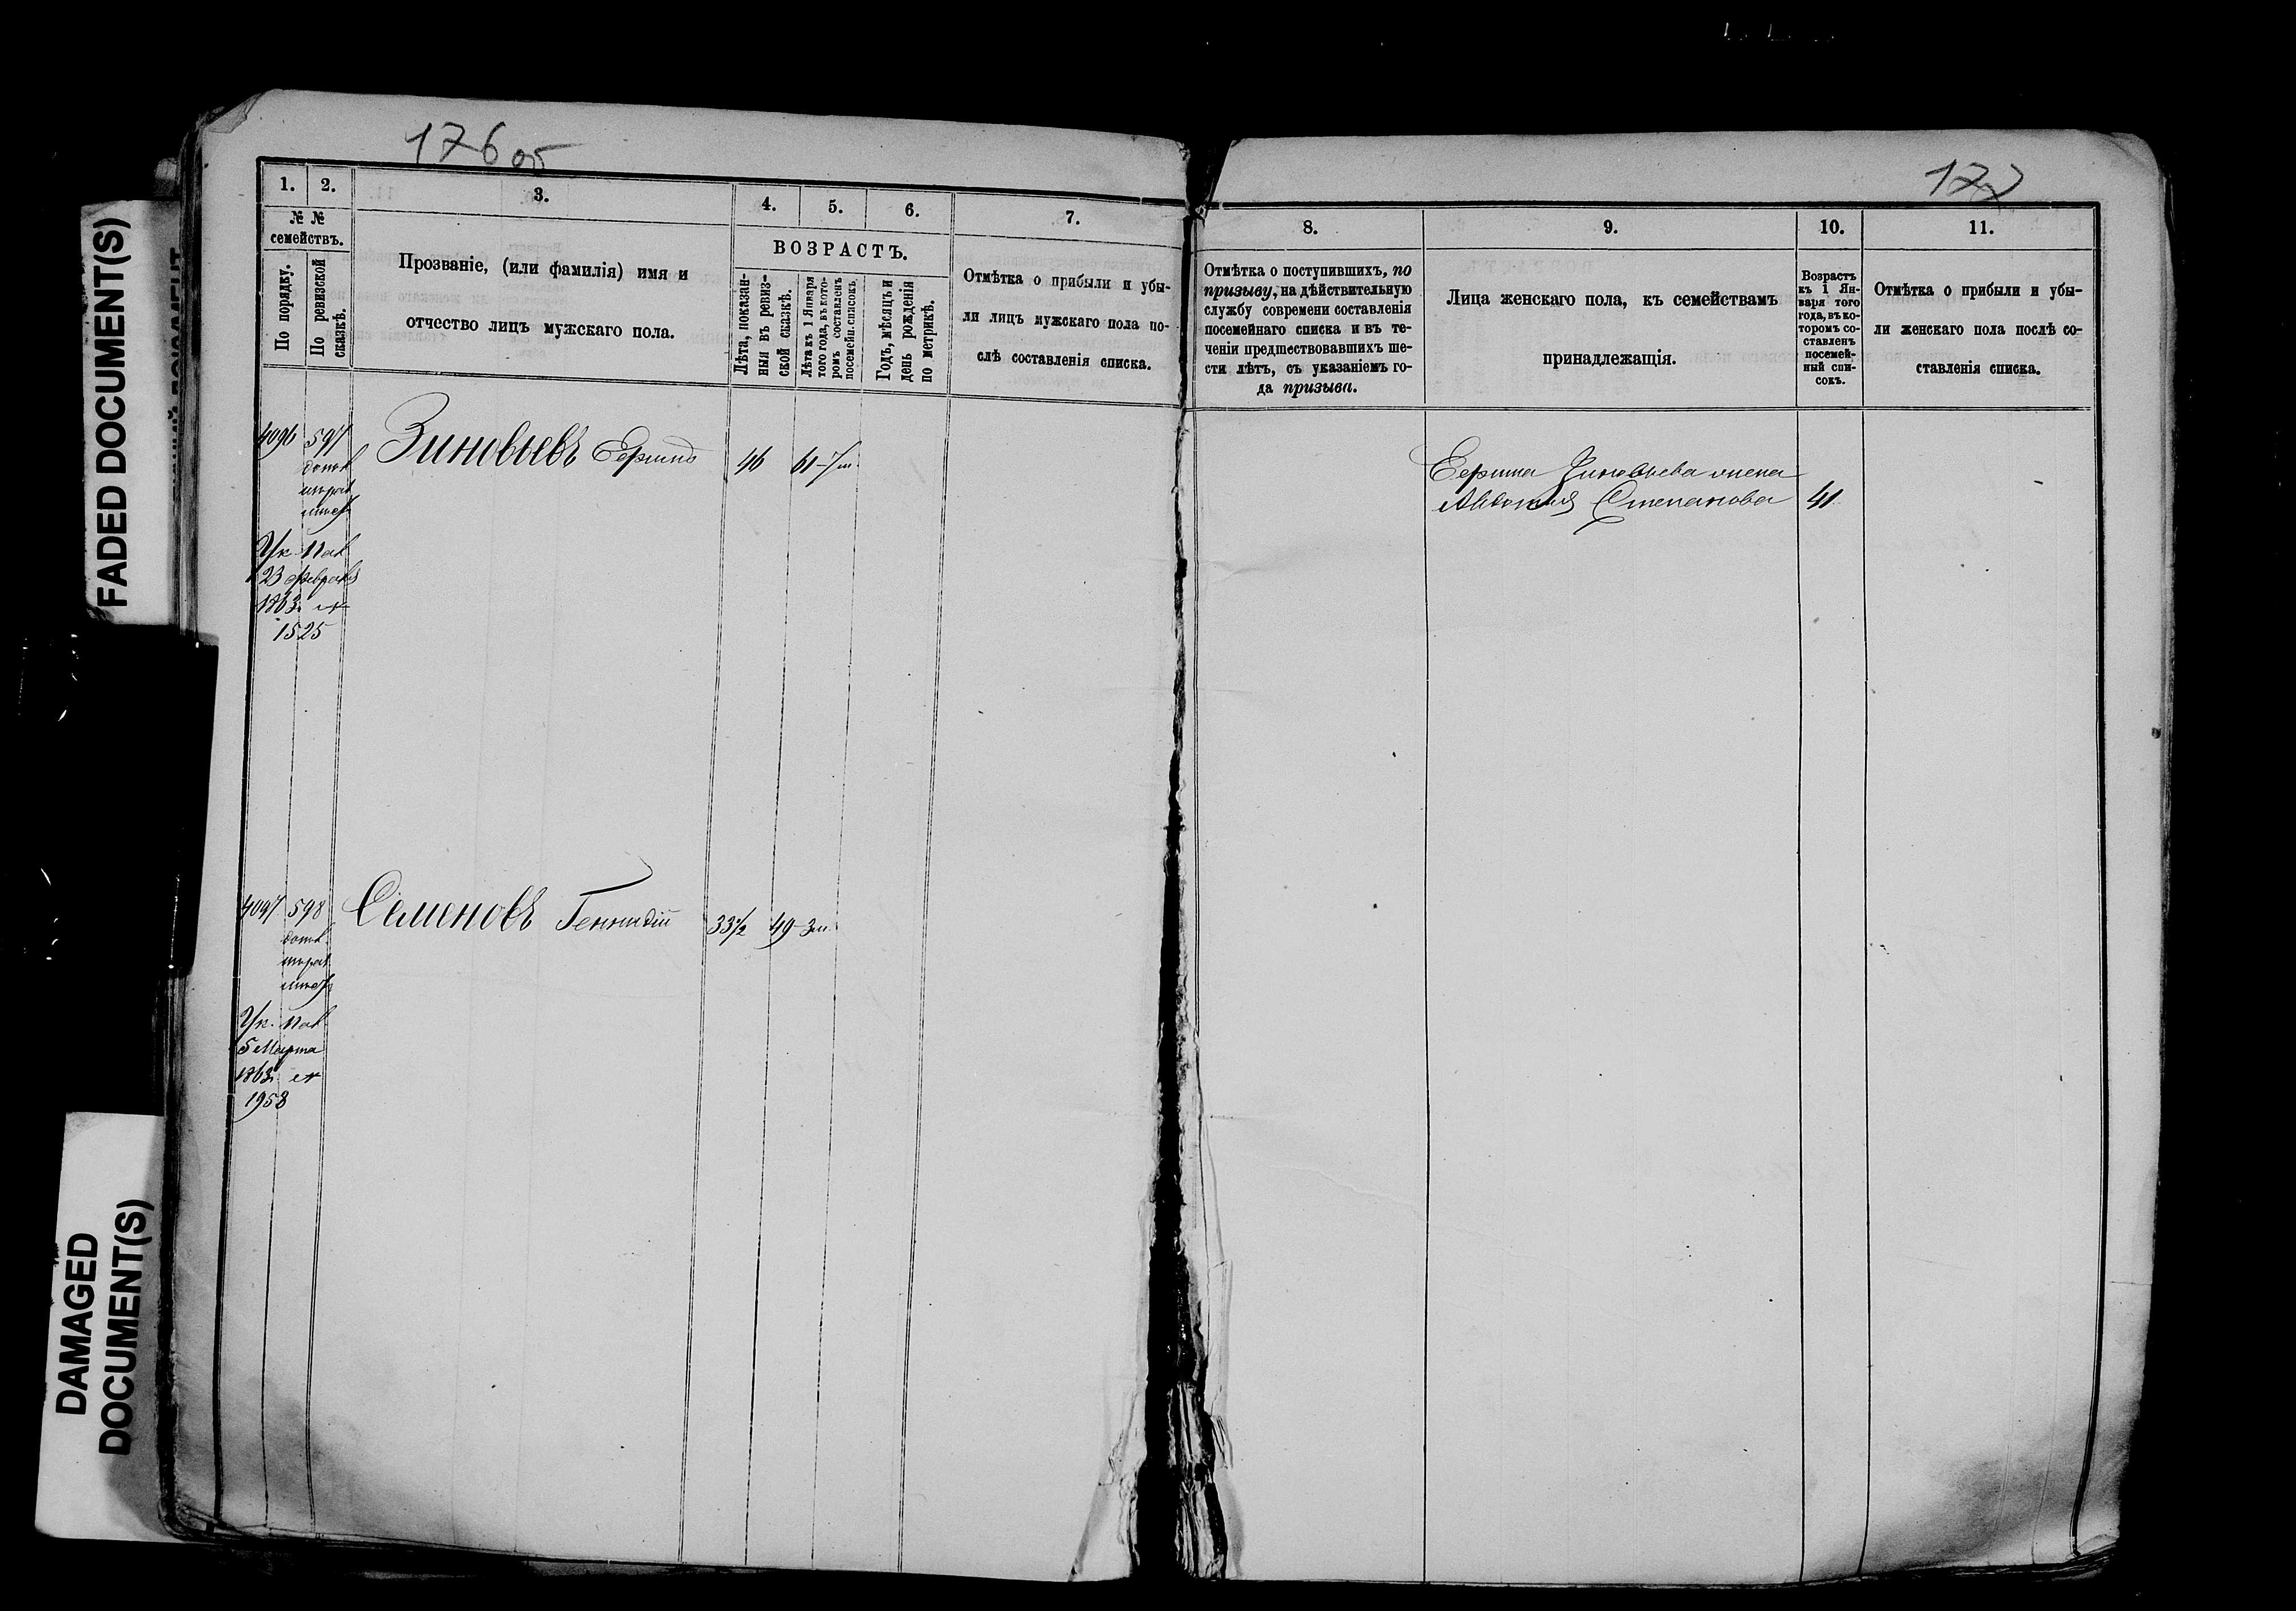 FADED DOCUMENT(S)
DAMAGED
DOCUMENT(S)
176 об
1. 2. 3. 4. 5. 6. 7.
№ №
семействъ.
По порядку.
По ревизской
сказкѣ.
Прозваніе, (или фамилія) имя и
отчество лицъ мужскаго пола.
ВОЗРАСТЪ.
Лѣта, показан-
ныя въ ревиз-
ской сказкѣ.
Лѣта къ 1 Января
того года, въ кото-
ромъ составленъ
посемейн. списокъ
Годъ, мѣсяцъ и
день рожденія
по метрикѣ.
Отмѣтка о прибыли и убы-
ли лицъ мужскаго пола по-
слѣ составленія списка.
4096 597 Зиновьевъ 46 61
Ук.
23 февраля
1863
1525
4097 598 Семеновъ Геннадій 33½ 49 3 м.
Ук.
5 Марта
1863
1958
177
8. 9. 10. 11.
Отмѣтка о поступившихъ, по
призыву, на дѣйствительную
службу современи составленія
посемейнаго списка и въ те-
ченіи предшествовавшихъ ше-
сти лѣтъ, съ указаніемъ го-
да призыва.
Лица женскаго пола, къ семействамъ
принадлежащія.
Возрастъ
къ 1 Ян-
варя того
года, въ ко-
торомъ со-
ставленъ
посемей-
ный спи-
сокъ.
Отмѣтка о прибыли и убы-
ли женскаго пола послѣ со-
ставленія списка.
Зиновьева жена
Авдотья Степанова 41